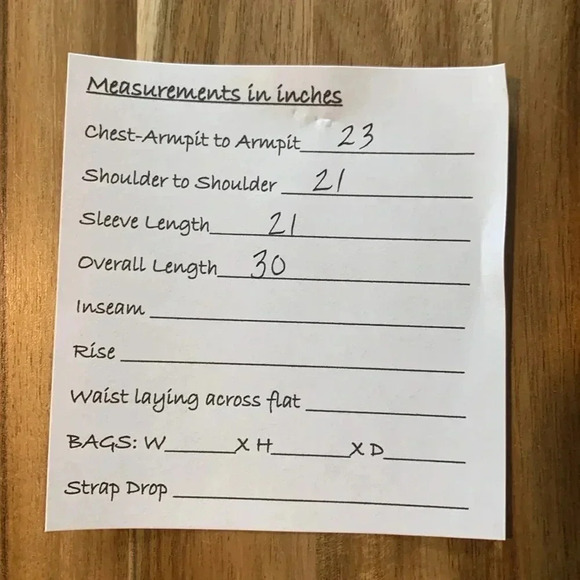 Measurements in inches
Chest-Armpit to Armpit 23
Shoulder to Shoulder 21
Sleeve Length 21
Overall Length 30
Inseam
Rise
Waist laying across flat
BAGS: W______X H______X D______
Strap Drop